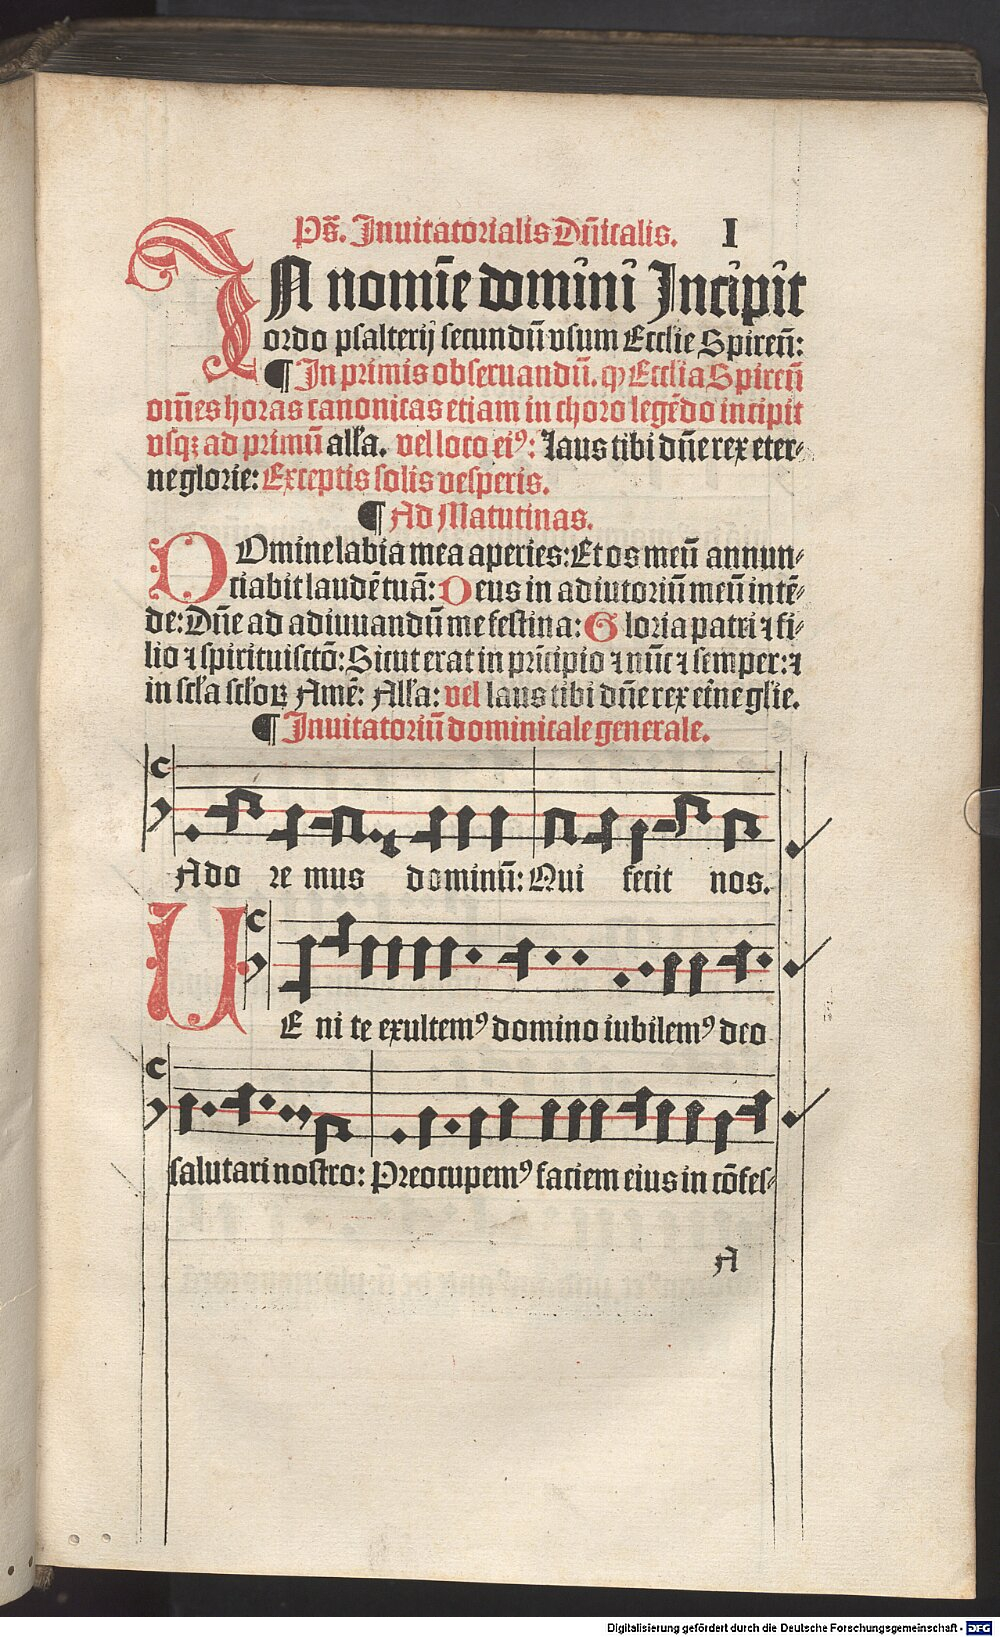 Ps̄. Inuitatorialis Dn̄icalis. I
IN nomīe domini Incipit
ordo psalterij secundū vsum Ecclie Spireñ:
¶ In primis obseruandū. ꝙ Ecclia Spireñ
om̄es horas canonicas etiam in choro legēdo incipit
vsqꝫ ad primū alľa. vel loco eiꝰ: laus tibi dn̄e rex eter⸗
ne glorie: Exceptis solis vesperis.
¶ Ad Matutinas.
DOmine labia mea aperies: Et os meū annun⸗
ciabit laudē tuā: Deus in adiutoriū meū intē⸗
de: Dn̄e ad adiuuandū me festina: Gloria patri ⁊ fi⸗
lio ⁊ spiritui sctō: Sicut erat in prīcipio ⁊ nūc ⁊ semper: ⁊
in scľa scľoꝝ Amē: Alľa: vel laus tibi dn̄e rex etn̄e glīe.
¶ Inuitatoriū dominicale generale.
Ado re mus dominū: Qui fecit nos.
UE ni te exultemꝰ domino iubilemꝰ deo
salutari nostro: Preocupemꝰ faciem eius in cōfes⸗
A
Digitalisierung gefördert durch die Deutsche Forschungsgemeinschaft - DFG